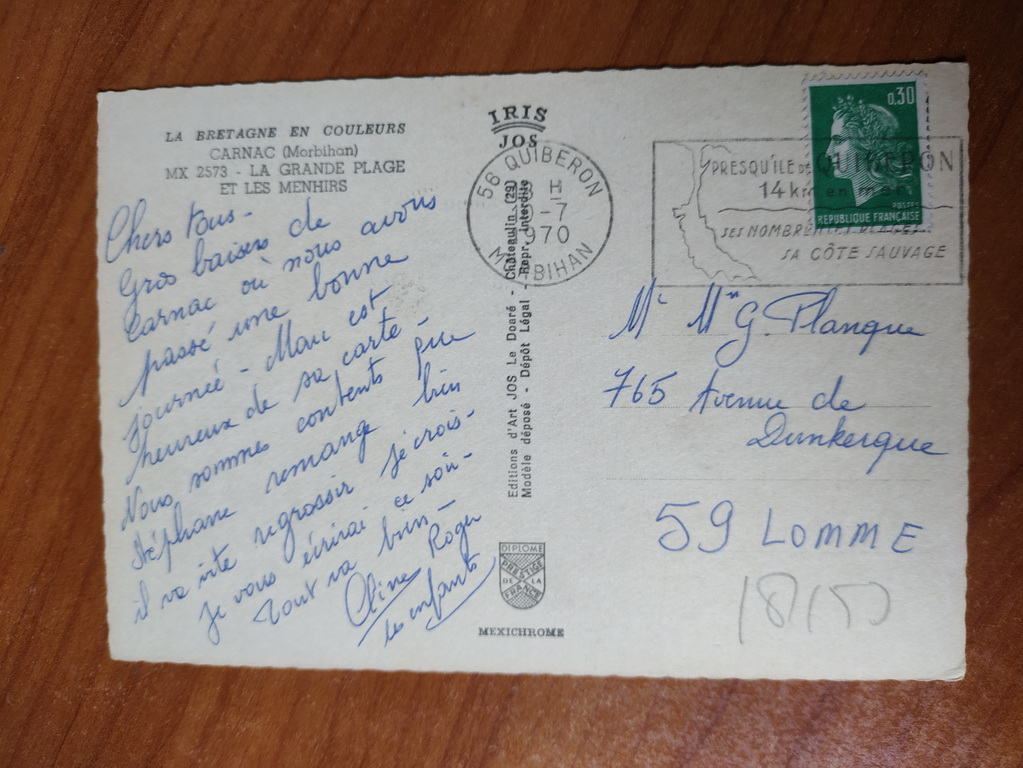 LA BRETAGNE EN COULEURS
CARNAC (Morbihan)
MX 2573 - LA GRANDE PLAGE
ET LES MENHIRS
Chers tous -
Gros baisers de
Carnac où nous avons
passé une bonne
journée - Marc est
heureux de sa carte -
Nous sommes contents que
Stéphane remange bien
il va vite regrossir je crois -
Je vous écrirai ce soir -
Tout va bien -
Roger
les enfants
IRIS
JOS
56 QUIBERON
H
-7
1970
MORBIHAN
Editions d'Art JOS Le Doaré - Châteaulin (29)
Modèle déposé - Dépôt Légal - Repr. Interdite
DIPLOME
PRESTIGE
DE LA
FRANCE
MEXICHROME
0,30
POSTES
REPUBLIQUE FRANÇAISE
PRESQU'ILE DE QUIBERON
14 km en mer
SES NOMBREUSES PLAGES
SA CÔTE SAUVAGE
Mr Mme G. Planque
765 Avenue de
Dunkerque
59 LOMME